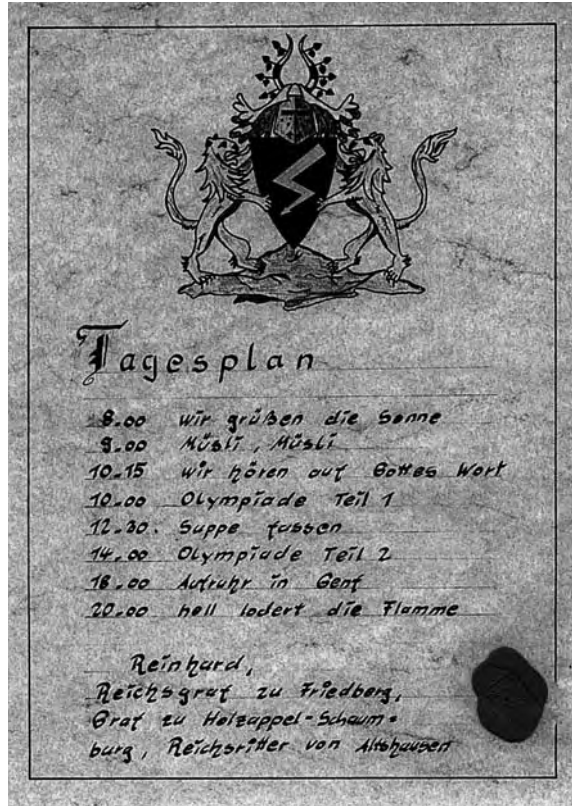 Tagesplan
8.00 wir grüßen die Sonne
9.00 Müsli, Müsli
10.15 wir hören auf Gottes Wort
10.00 Olympiade Teil 1
12.30. Suppe fassen
14.00 Olympiade Teil 2
18.00 Aufruhr in Genf
20.00 hell lodert die Flamme
Reinhard,
Reichsgraf zu Friedberg,
Graf zu Holzappel-Schaum=
burg, Reichsritter von Altshausen